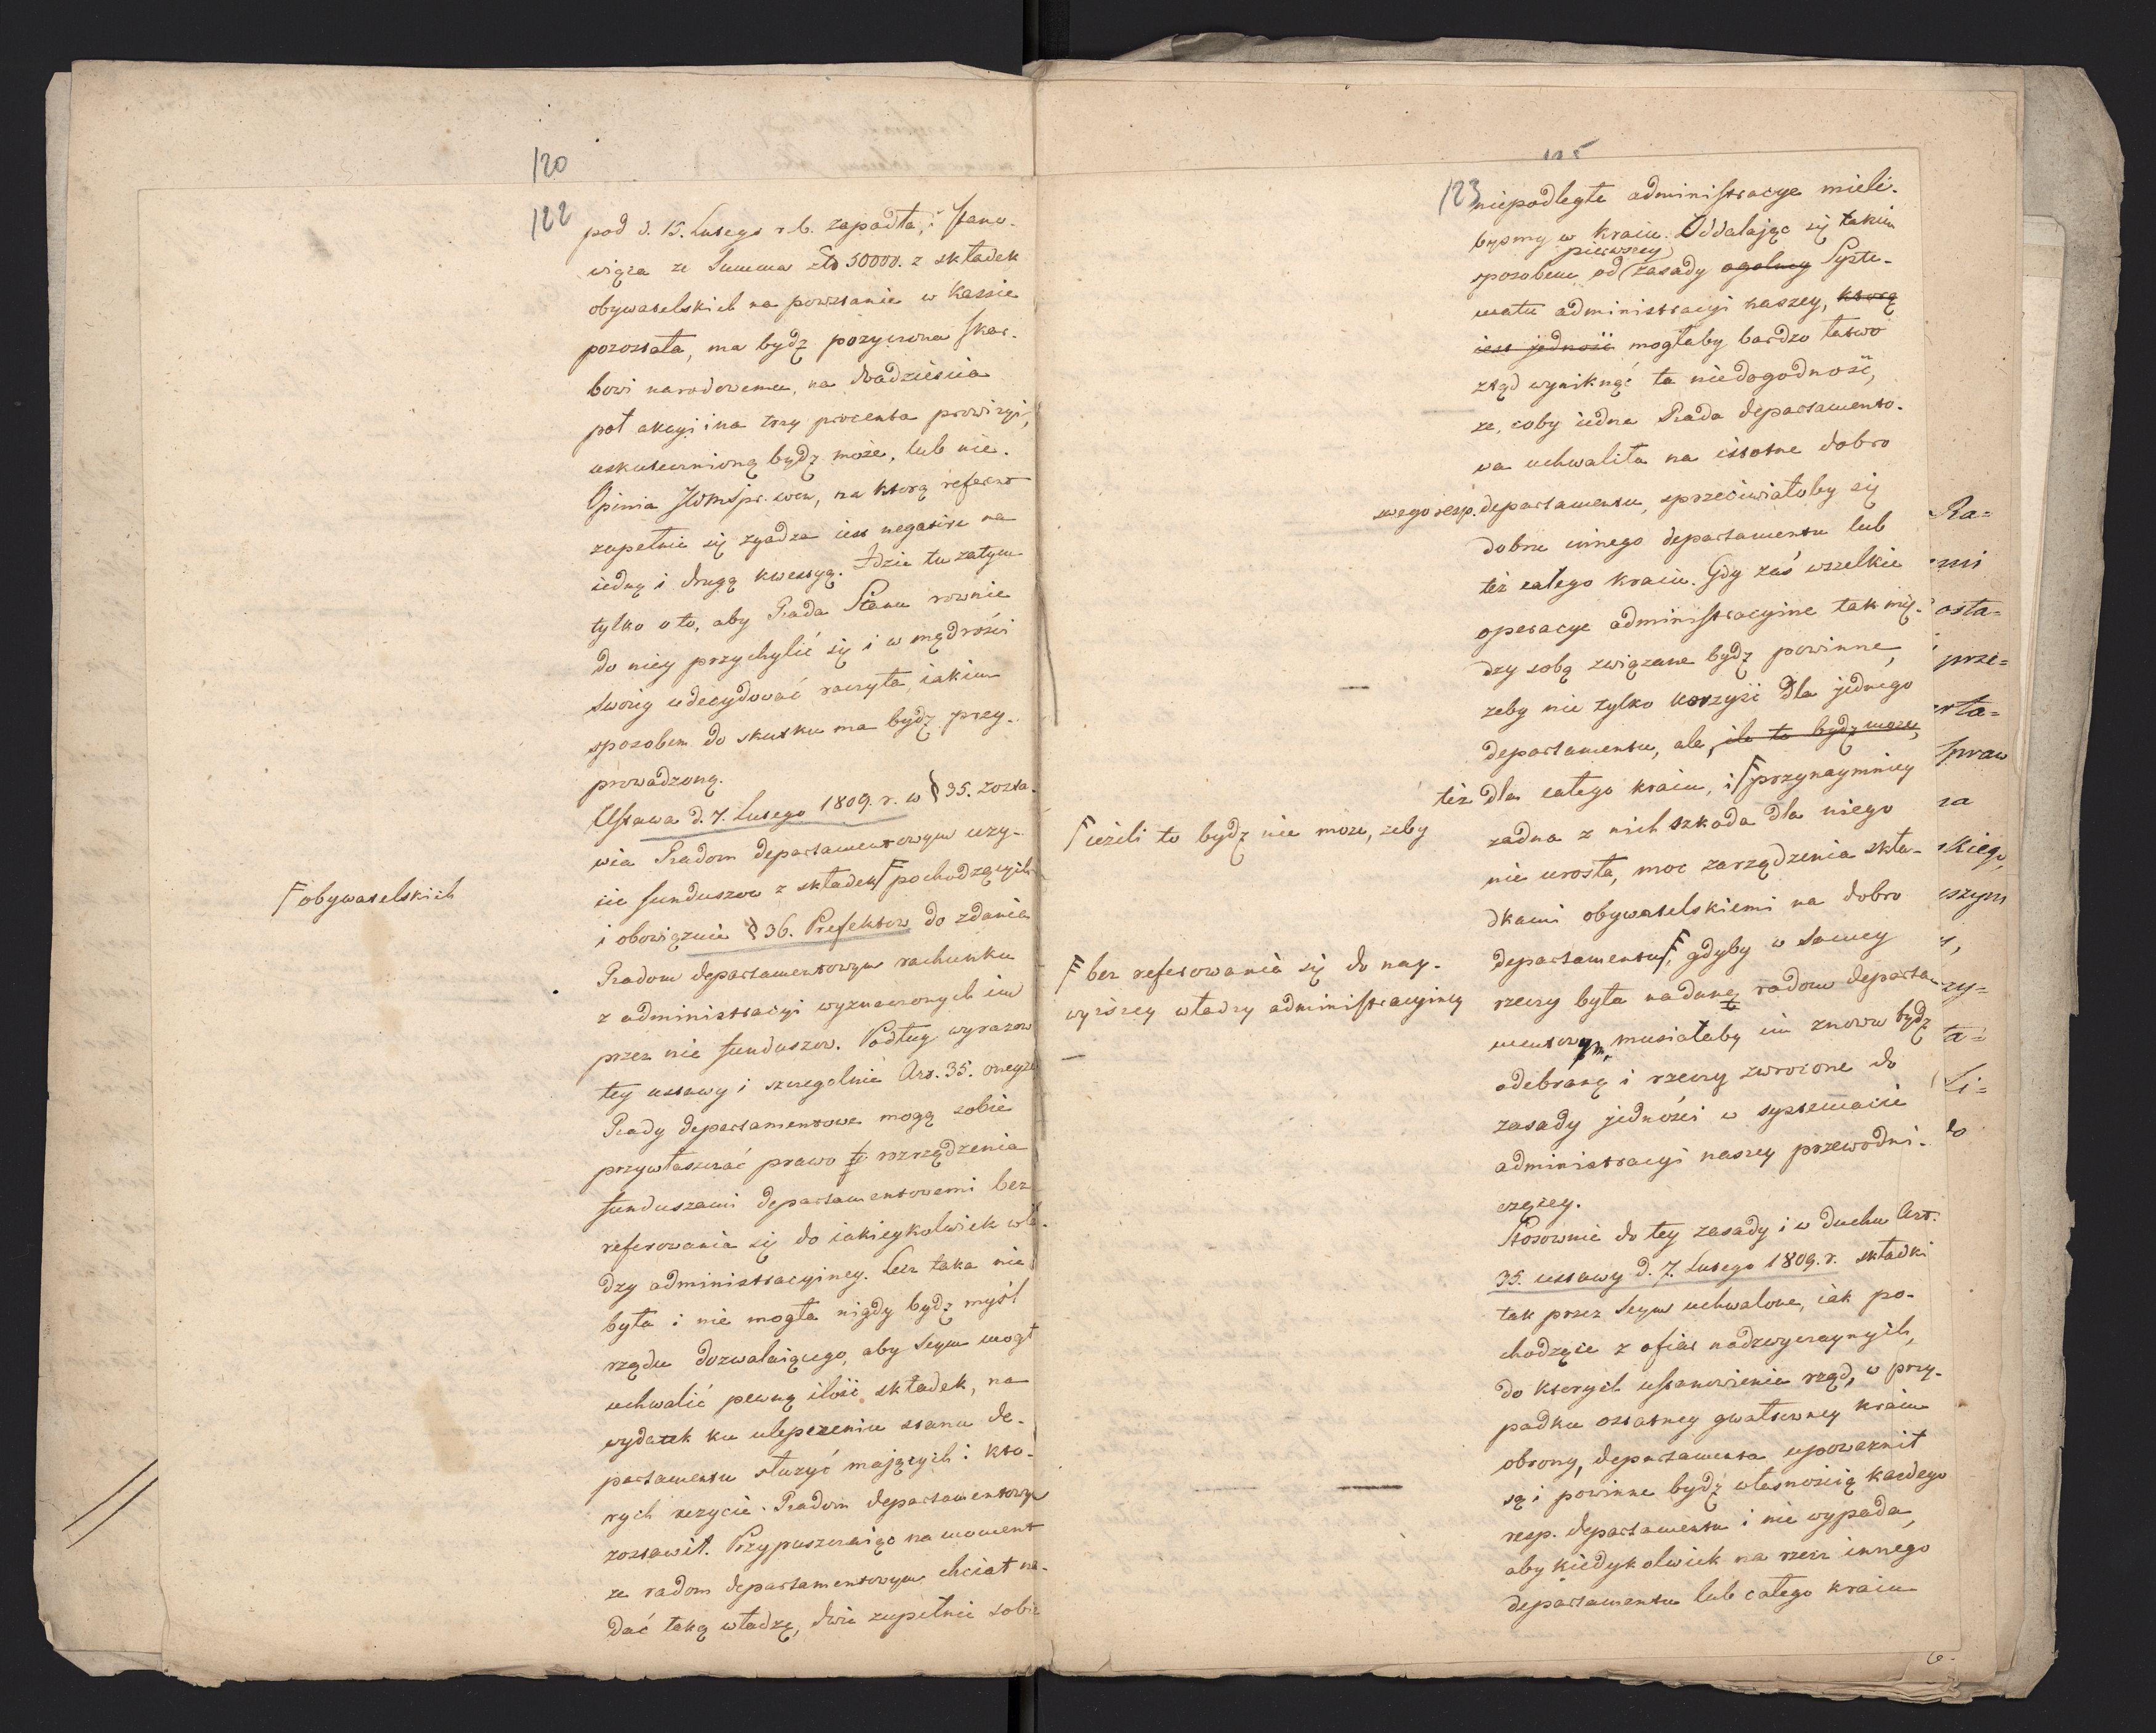 120
122
pod d. 15. Lutego r. b. zapadła, i stano-
wiąca ze Summa złt 50000. z składek
obywatelskich na powstanie w Kassie
pozostała, ma bydź pożyczona skar-
bowi narodowemu, na dwadzieścia
pół akcyi i na trzy procenta prowizyi,
uskutecznioną bydź może, lub nie.
Opinia JWMspr. wew, na ktorą referent
zupełnie się zgadza iest negative na
iedną i drugą kwestyą. Idzie tu zatym
tylko o to, aby Rada Stanu rownie
do niey przychylić się i w mądrości
swoiey udecydować raczyła, iakim
sposobem do skutku ma bydź przy-
prowadzoną.
Ustawa d. 7. Lutego 1809. r. w § 35. zosta-
wia Radom departamentowym uży-
cie funduszow z składek pochodzących
obywatelskich
i obowiązuie § 36. Prefektow do zdania
Radom departamentowym rachunku
z administracyi wyznaczonych im
przez nie funduszow. Podług wyrazow
tey ustawy i szczegolnie Art. 35. oneyże
Rady departamentowe mogą sobie
przywłaszczać prawo rozrządzenia
funduszami departamentowemi bez
referowania się do iakieykolwiek wła-
dzy administracyiney. Lecz taka nie
była i nie mogła nigdy bydź myśl
rządu dozwalaiącego, aby Seym mogł
uchwalić pewną ilość składek, na
wydatek ku ulepszeniu stanu de-
partamentu służyć mających i kto-
rych użycie Radom departamentowym
zostawił. Przypuszczaiąc na moment
ze radom departamentowym chciał na-
dać taką władzę, dwie zupełnie sobie
125
123
niepodległe administracye mieli-
byśmy w kraiu. Oddalając się takim
pierwszey
sposobem od zasady ogolney Syste-
matu administracyi naszey, ktorą
iest jedność mogłaby bardzo łatwo
ztąd wyniknąć ta niedogodność,
ze, coby iedna Rada departamento-
wa uchwaliła na istotne dobro
swego resp. departamentu, sprzeciwiałoby się
dobru innego departamentu lub
też całego kraiu. Gdy zaś wszelkie
operacye administracyine tak mię-
dzy sobą związane bydź powinne,
żeby nie tylko korzyści dla jednego
departamentu, ale, ile to bydź może,
też dla całego kraiu, i przynaymniey
ieżeli to bydź nie może, żeby
żadna z nich szkoda dla niego
nie urosła, moc zarządzenia skła-
dkami obywatelskiemi na dobro
departamentu, gdyby w samey
bez referowania się do nay-
wyższey władzy administracyiney
rzeczy była nadaną radom departa-
mentowym, musiałaby im znowu bydź
odebraną i rzeczy zwrocone do
zasady jedności w systemacie
administracyi naszey przewodni-
czącey.
Stosownie do tey zasady i w duchu Art.
35. ustawy d. 7. Lutego 1809. r. składki
tak przez Seym uchwalone, iak po-
chodzące z ofiar nadzwyczaynych,
do ktorych ustanowienia rząd, w przy-
padku ostatney gwałtowney kraiu
obrony, departamenta upoważnił
są i powinne bydź własnością każdego
resp. departamentu i nie wypada,
aby kiedykolwiek na rzecz innego
departamentu lub całego kraiu
Ra=
osta=
prze=
Spraw
za
skiego,
wszym
zy=
ta=
Li=
do